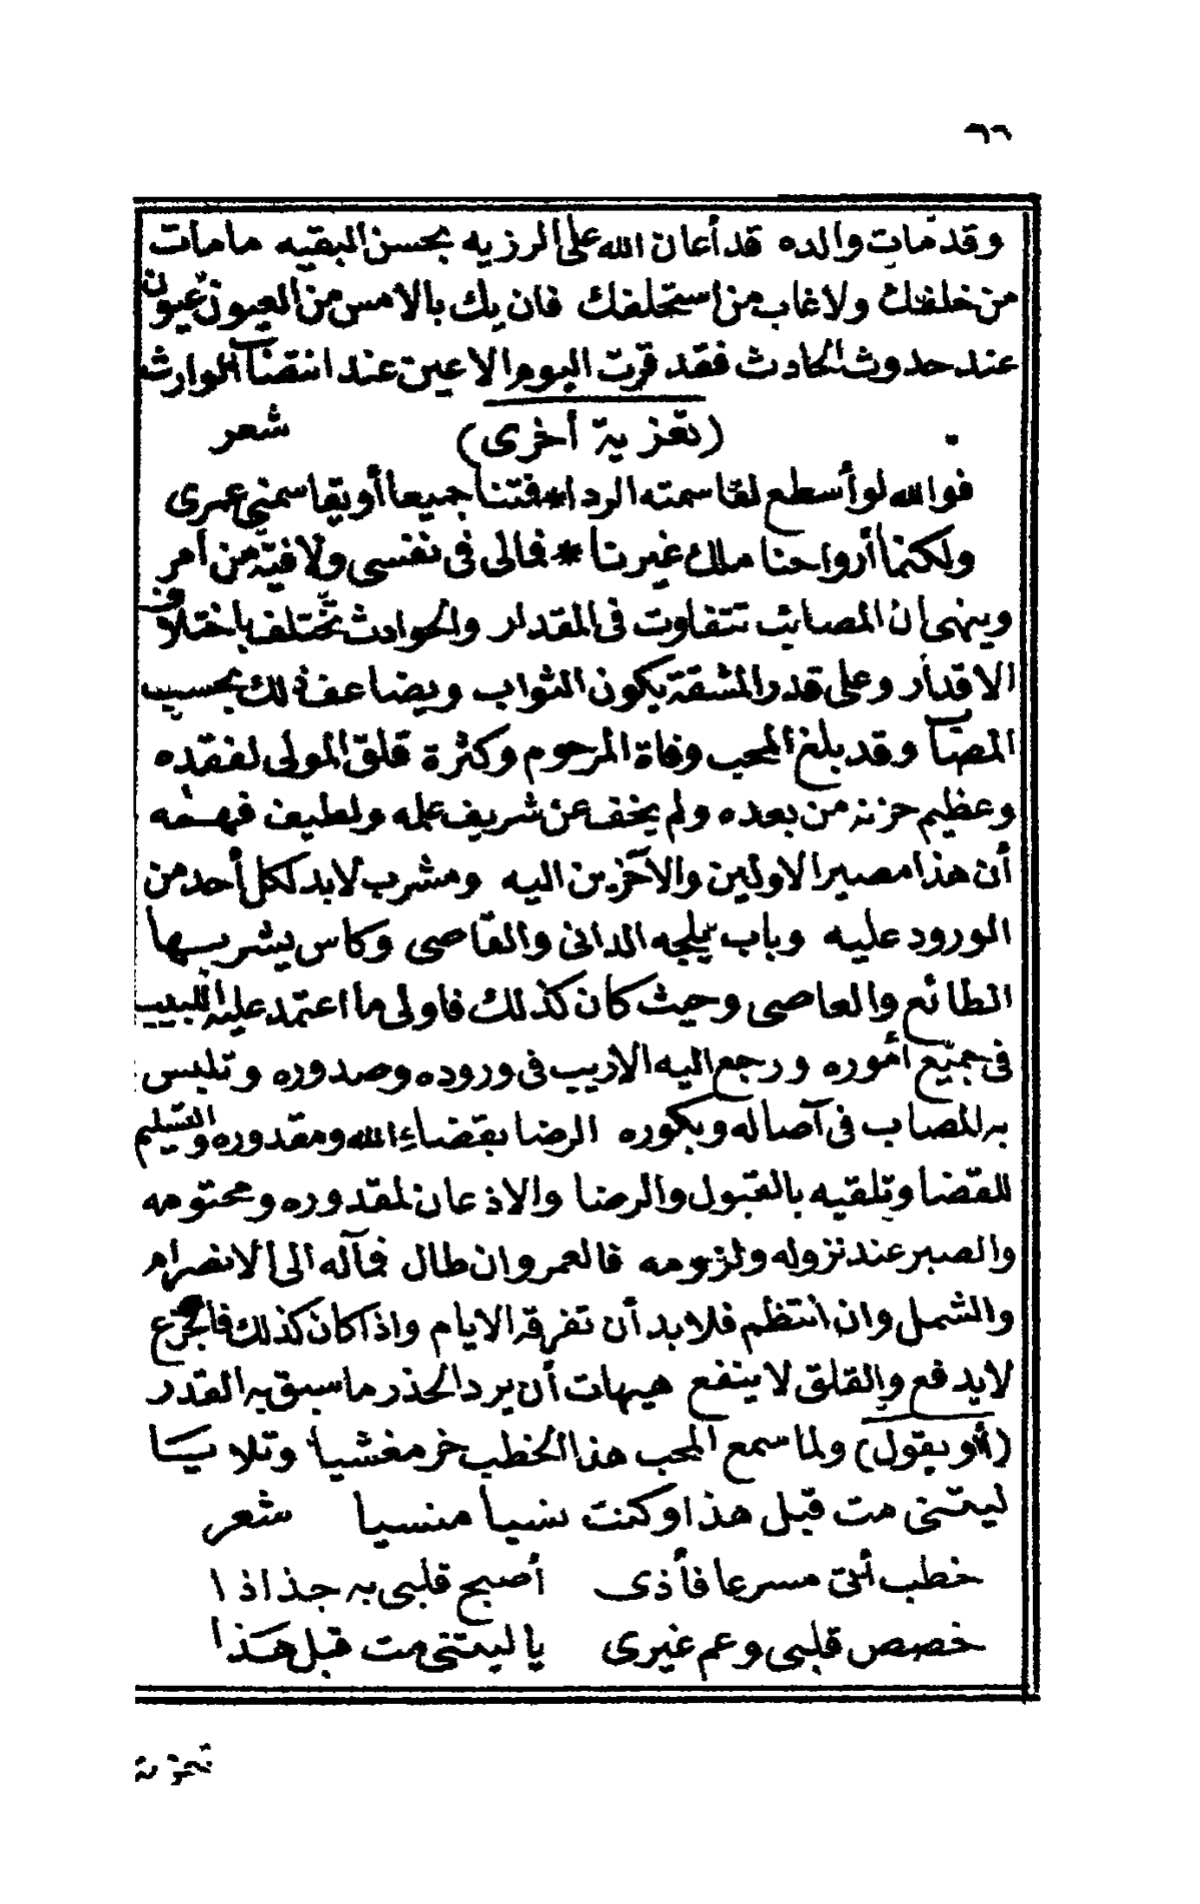 ٦٦
وقد مات والده قد أعان الله على الرزيه بحسن البقيه مامات
من خلفك ولا غاب من استخلفك فان يك بالامس من العيون عيون
عند حدوث الحادث فقد قرت اليوم الاعين عند انتقضا الوارث
(تعزية أخرى) شعر
فوالله لو أسطع لقاسمته الردا * فتنا جميعا أو يقاسمني عمرى
ولكنما أرواحنا ملك غيرنا * فمالى فى نفسى ولا فيه من أمر
وينهى ان المصائب تتفاوت فى المقدار والحوادث تختلف باختلاف
الاقدار وعلى قدر المشقة يكون الثواب ويضاعف ذلك بحسب
المصاب وقد بلغ المحب وفاة المرحوم وكثرة قلق المولى لفقده
وعظيم حزنه من بعده ولم يخف عن شريف علمه ولطيف فهمه
أن هذا مصير الاولين والآخرين اليه ومشرب لابد لكل أحد من
الورود عليه وباب يلجه الدانى والقاصى وكاس يشربها
الطائع والعاصى وحيث كان كذلك فاولى ما اعتمد عليه اللبيب
فى جميع أموره ورجع اليه الاريب فى وروده وصدوره وتلبس
به المصاب فى آصاله وبكوره الرضا بقضاء الله ومقدوره والتسليم
للقضا وتلقيه بالقبول والرضا والاذعان لمقدوره ومحتومه
والصبر عند نزوله ولزومه فالعمر وان طال فمآله الى الانصرام
والشمل وان انتظم فلابد أن تفرقه الايام واذا كان كذلك فالجزع
لايدفع والقلق لاينفع هيهات أن يرد الحذر ماسبق به القدر
(أو يقول) ولما سمع المحب هذا الخطب خر مغشيا وتلا يا
ليتنى مت قبل هذا وكنت نسيا منسيا شعر
خطب أتى مسرعا فأذى أصبح قلبى به جذاذا
خصص قلبى وعم غيرى يا ليتنى مت قبل هذا
تعزية